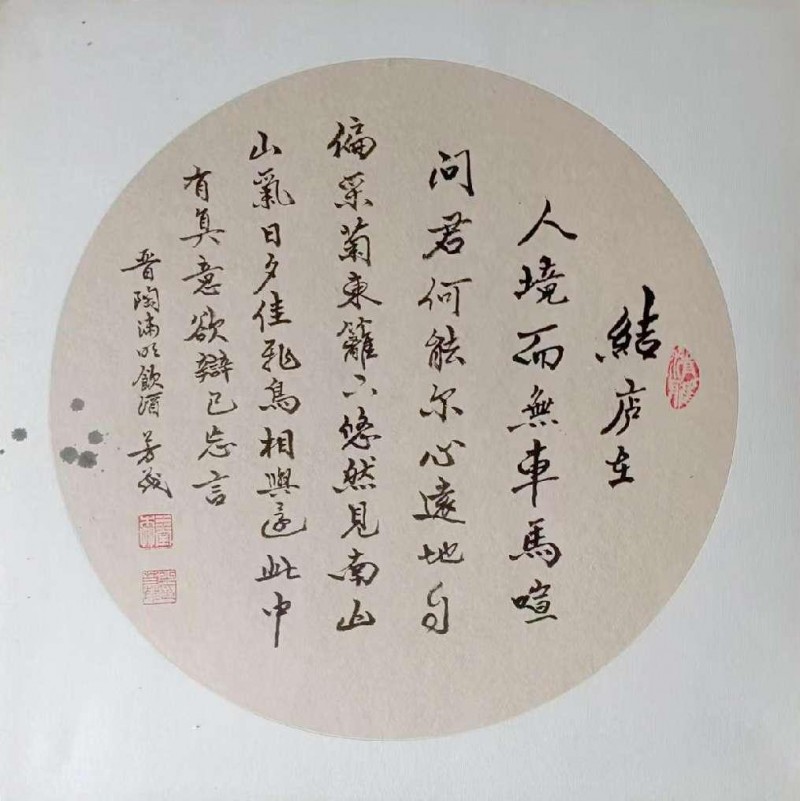 結庐在
人境而無車馬喧
问君何能尔心遠地自
偏采菊東籬下悠然見南山
山氣日夕佳飛鳥相與還此中
有真意欲辯已忘言
晋陶渊明飲酒 芳